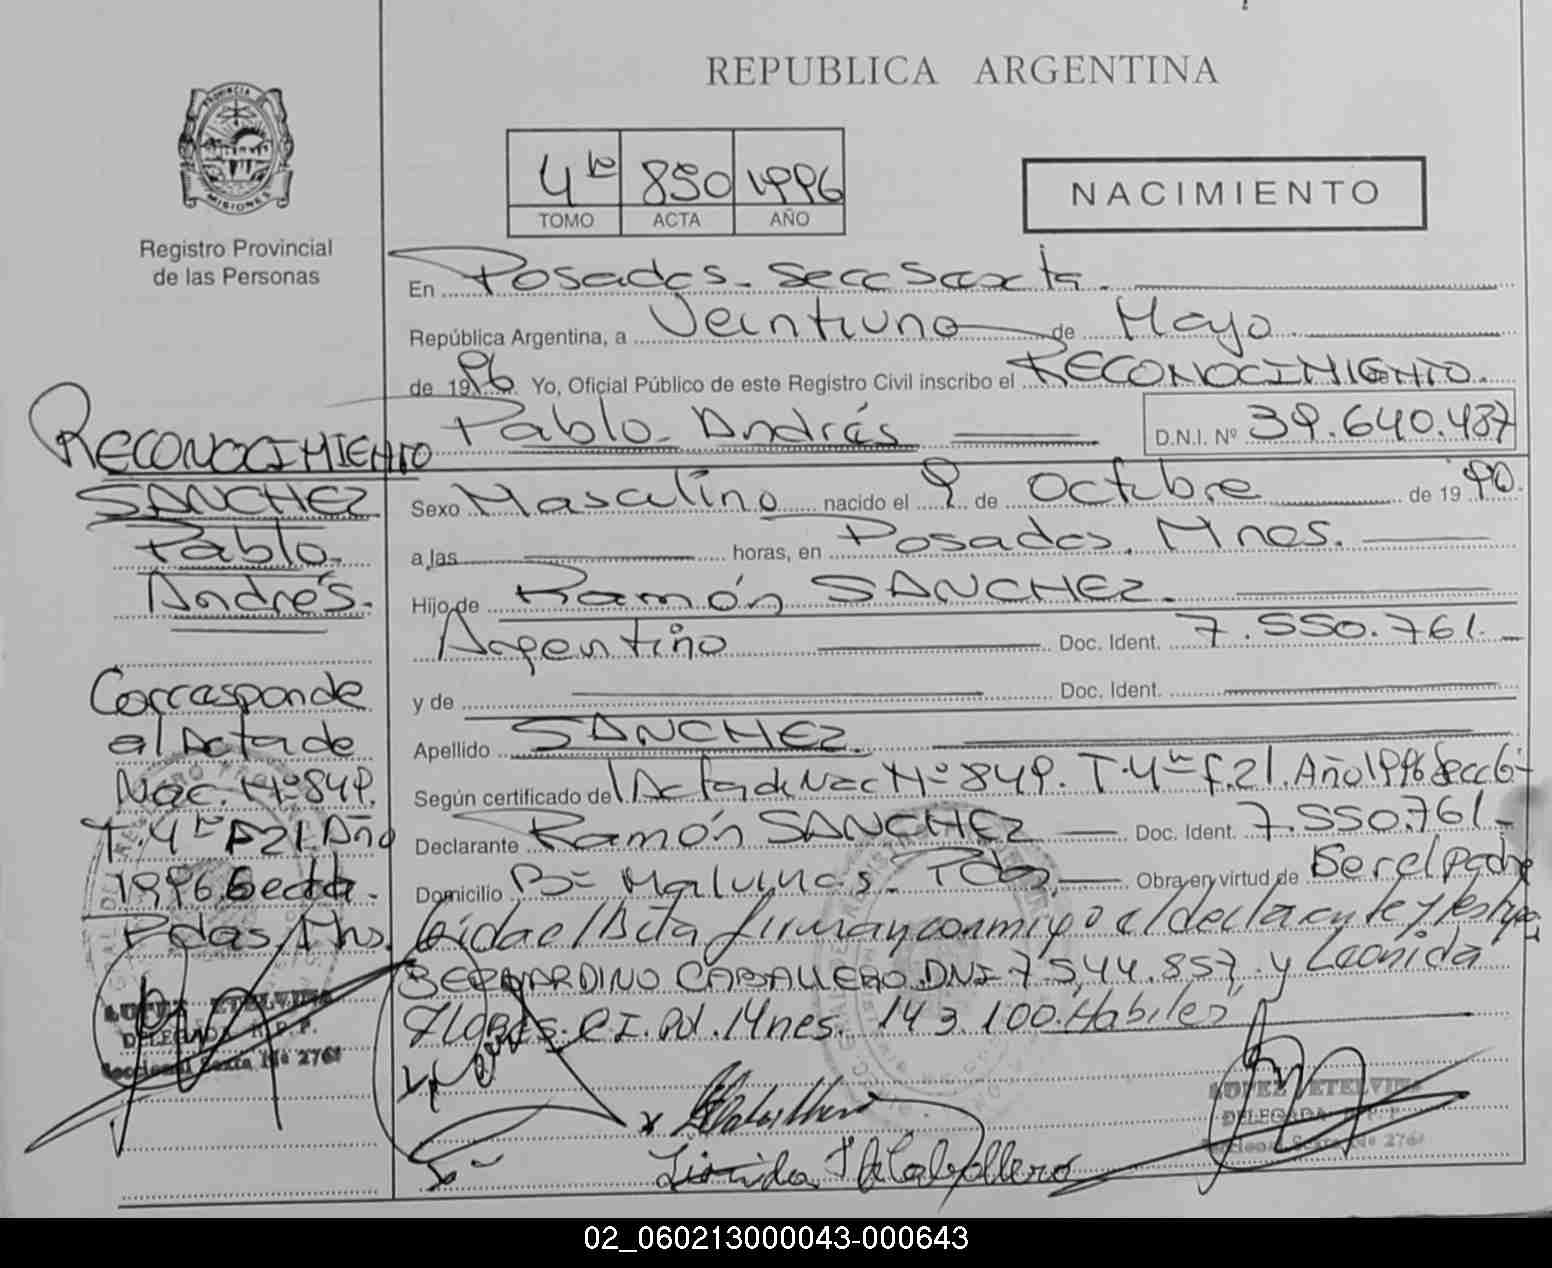 REPUBLICA ARGENTINA
PROVINCIA DE
MISIONES
Registro Provincial
de las Personas
4to 850 1996
TOMO ACTA AÑO
NACIMIENTO
En Posadas. Secc Sexta.
República Argentina, a Veintiuno de Mayo
de 1996 Yo, Oficial Público de este Registro Civil inscribo el RECONOCIMIENTO.
Pablo Andrés D.N.I. Nº 39.640.437
Sexo Masculino nacido el 9 de Octubre de 1990.
a las horas, en Posadas. Mnes.
Hijo de Ramón SANCHEZ.
Argentino Doc. Ident. 7.550.761.
y de Doc. Ident.
Apellido SANCHEZ.
Según certificado del Acta de Nac Nº 849. T.4to F.21. Año 1996 Secc 6
Declarante Ramón SANCHEZ Doc. Ident. 7.550.761.
Domicilio Bº Malvinas. Pdas. Obra en virtud de Ser el padre
leida el Acta firman conmigo el declarante y testigos
BERNARDINO CABALLERO DNI 7.544.857, y Leonida
Flores. C.I. Pol. Mnes. 143.100. Habiles
RECONOCIMIENTO
SANCHEZ
Pablo
Andrés.
Corresponde
al Acta de
Nac. Nº 849.
T.4to F21. Año
1996. Secc 6ta.
Pdas. Mns.
LOPEZ ETELVINA
DELEGADA R.P.P.
Seccional Sexta Nº 276
LOPEZ ETELVINA
DELEGADA R.P.P.
Seccional Sexta Nº 276
02_060213000043-000643